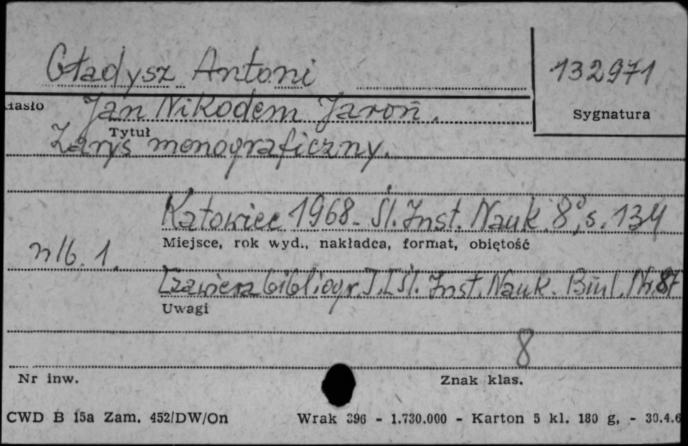 Gładysz Antoni
132971
hasło
Sygnatura
Jan Nikodem Jaroń.
Tytuł
Zarys monograficzny.
Katowice 1968. Śl. Inst. Nauk. 8°, s. 134
Miejsce, rok wyd., nakładca, format, objętość
nlb. 1.
[zawiera bibliogr.] [Śl. Inst. Nauk. Biul. Nr. 87
Uwagi
8
Nr inw.
Znak klas.
CWD B 15a Zam. 452/DW/On Wrak 396 - 1.730.000 - Karton 5 kl. 180 g, - 30.4.6